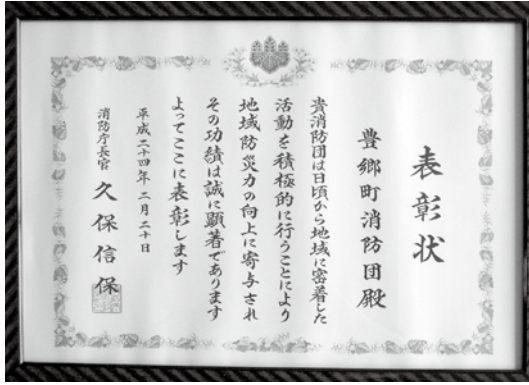 表彰状
豊郷町消防団殿
貴消防団は日頃から地域に密着した
活動を積極的に行うことにより
地域防災力の向上に寄与され
その功績は誠に顕著であります
よってここに表彰します
平成二十四年二月二十日
消防庁長官 久保信保